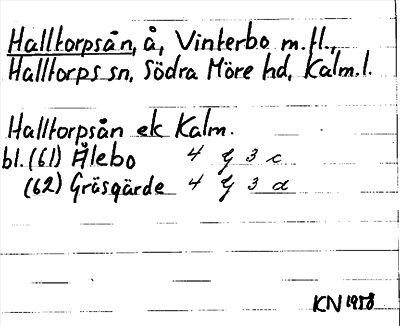 Halltorpsån, å, Vinterbo m.fl.,
Halltorps sn, Södra Möre hd, Kalm.l.
Halltorpsån ek Kalm.
bl. (61) Ålebo 4 G 3 c
(62) Gräsgärde 4 G 3 d
KN 1958